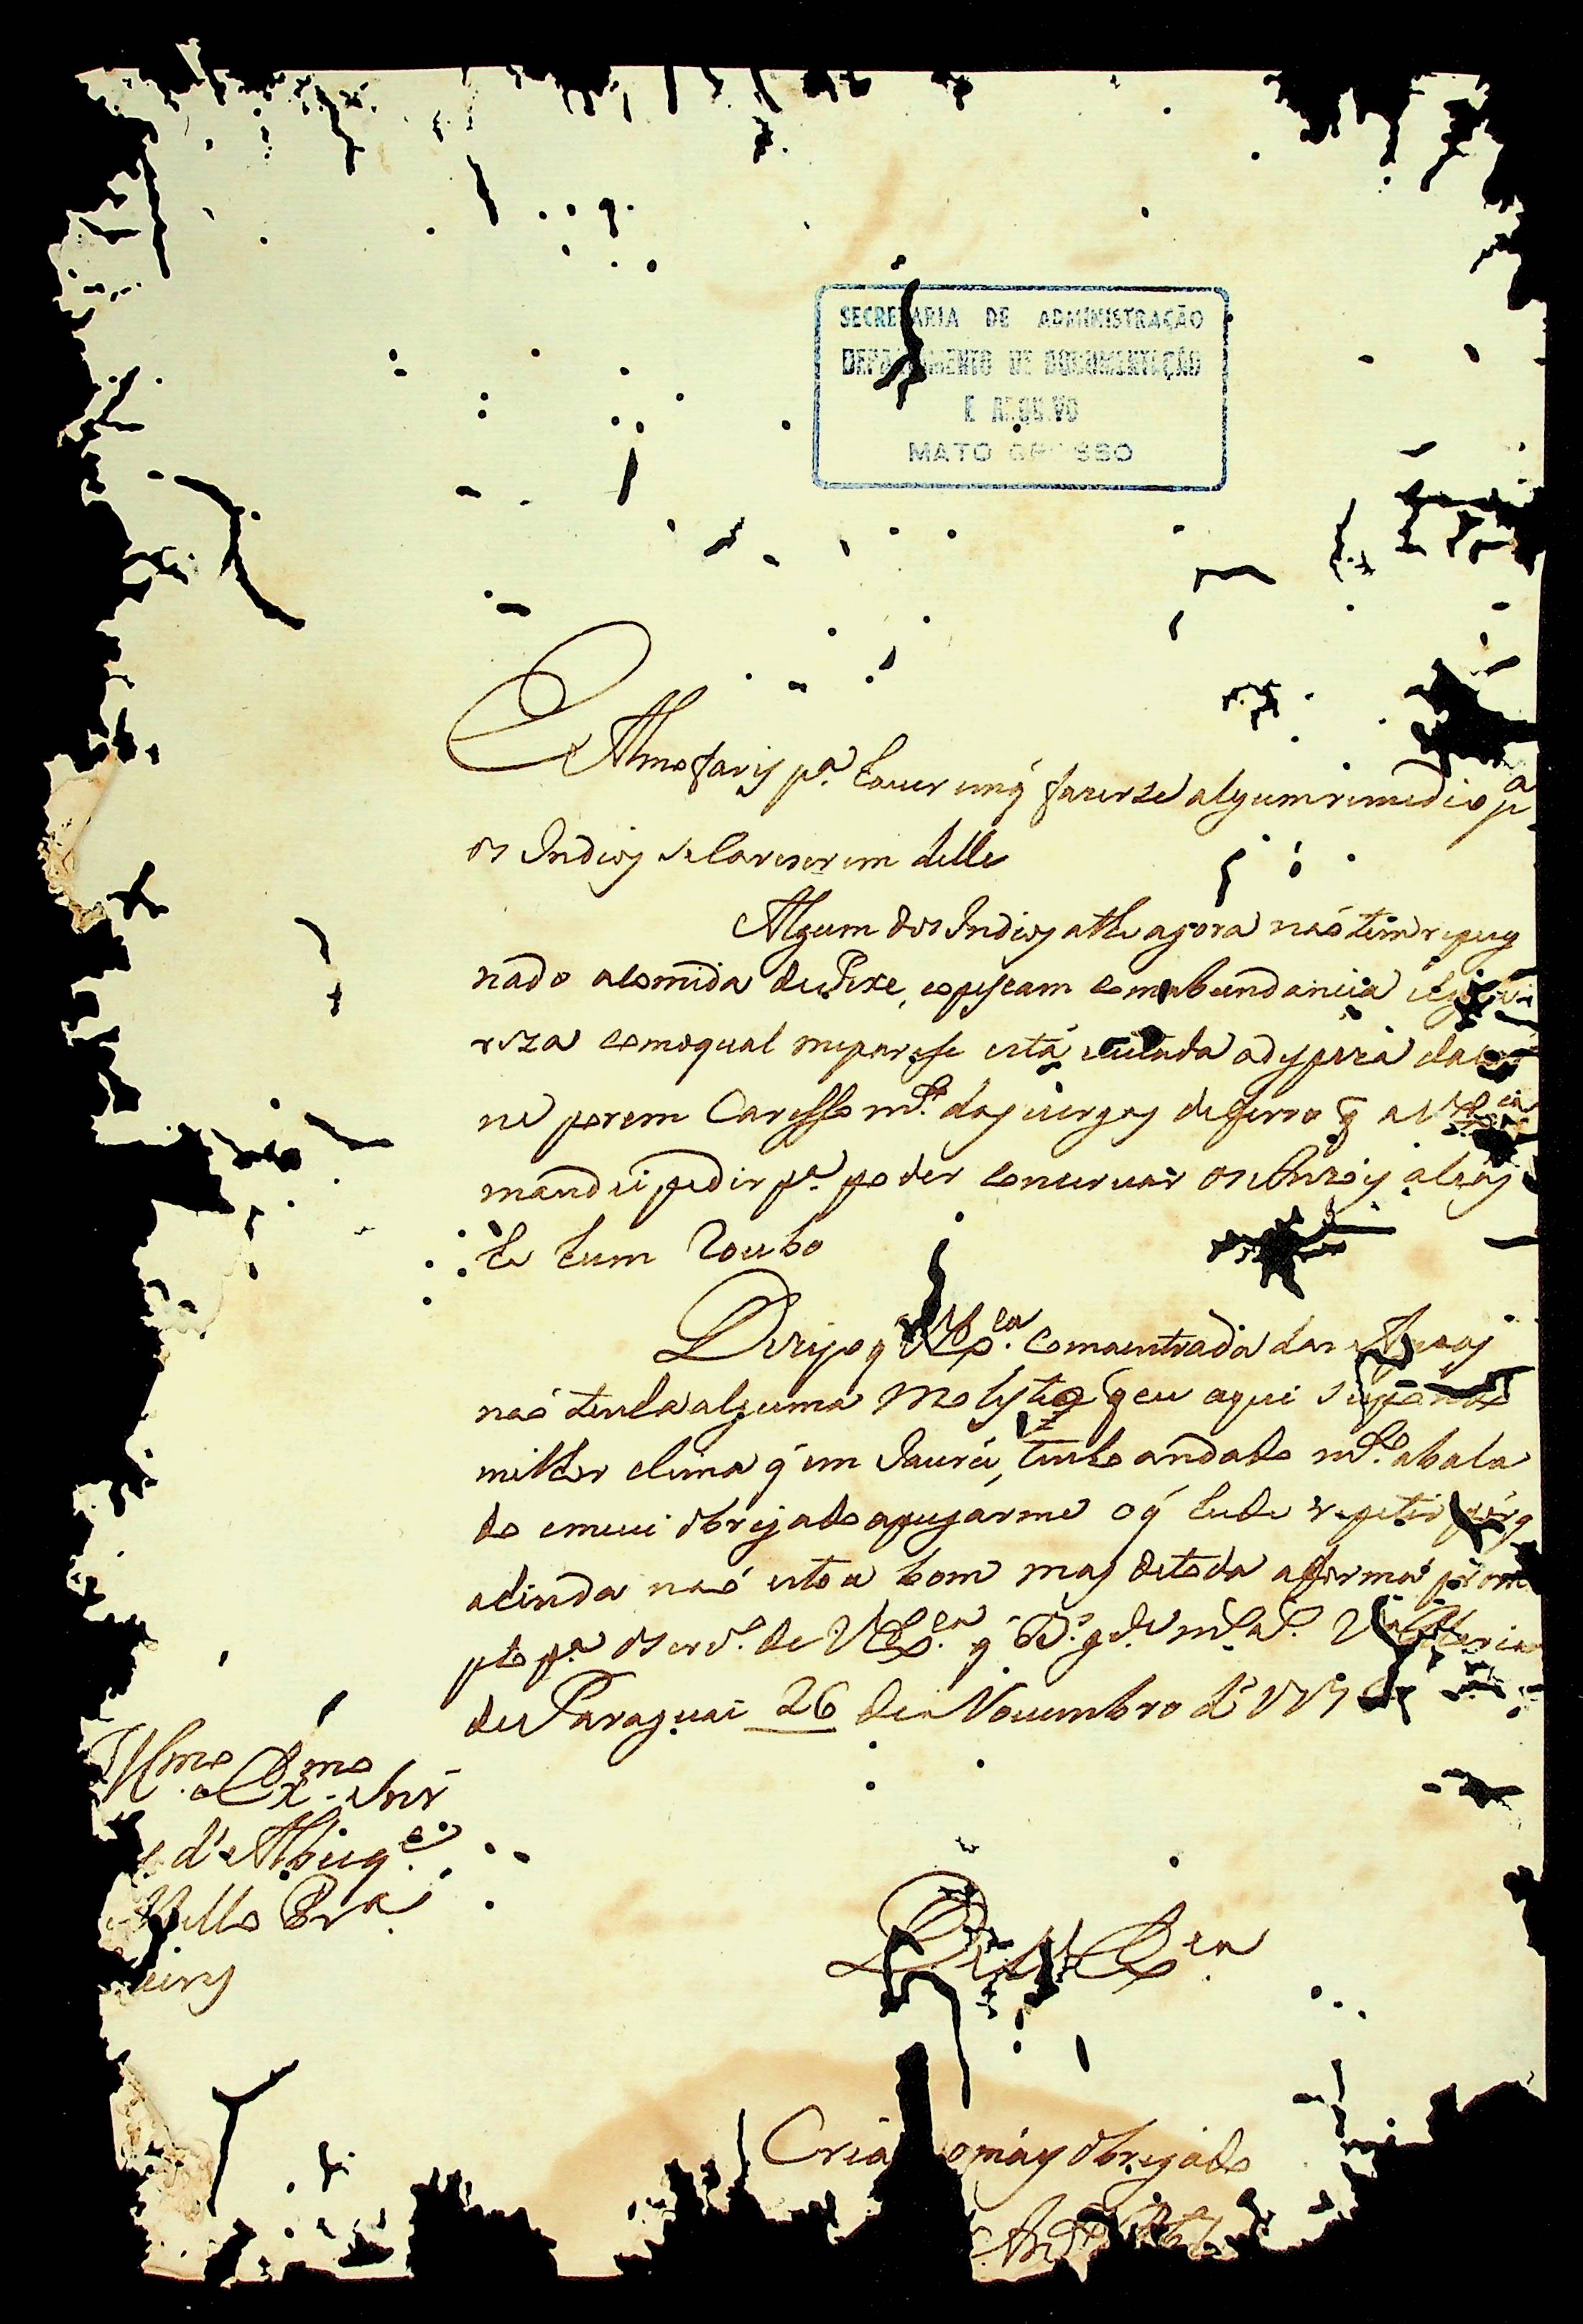 SECRETARIA DE ADMINISTRAÇÃO
DEPARTAMENTO DE DOCUMENTAÇÃO
E ARQUIVO
MATO GROSSO
Almofaris pª. hauer em q̃ fazerse algum remedio pª
os Indios se Careserem delle
Algum dos Indios athe agora naõ tem repug
nado acomida de Peixe, eopescam com abundancia
reza como qual meparese está adespeza da
ne porem Caresso mtº. das uergas de ferro q̃ a VExcia
mandei pedir pª. poder concervar os Anzois aliás
he hum Roubo
Dezejo q̃ VExcia. comaentrada das Agoas
naõ tenha alguma Molestia q̃ eu aqui
milhor clima q̃ em Jaurú, tenho andado mtº. abala
do emeui obrigado apugarme oq̃ hude repetir porq̃
ahinda naõ estou bom mas detoda a forma prom
pto pª oserv.º de VExcia. q̃ Ds. gde. ms. as.
de Paraguai 26 de Novembro d' 177
Illmo Exmo Snr
d' Albuqe.
Mello Pra
De VExcia
Criado mais obrigado